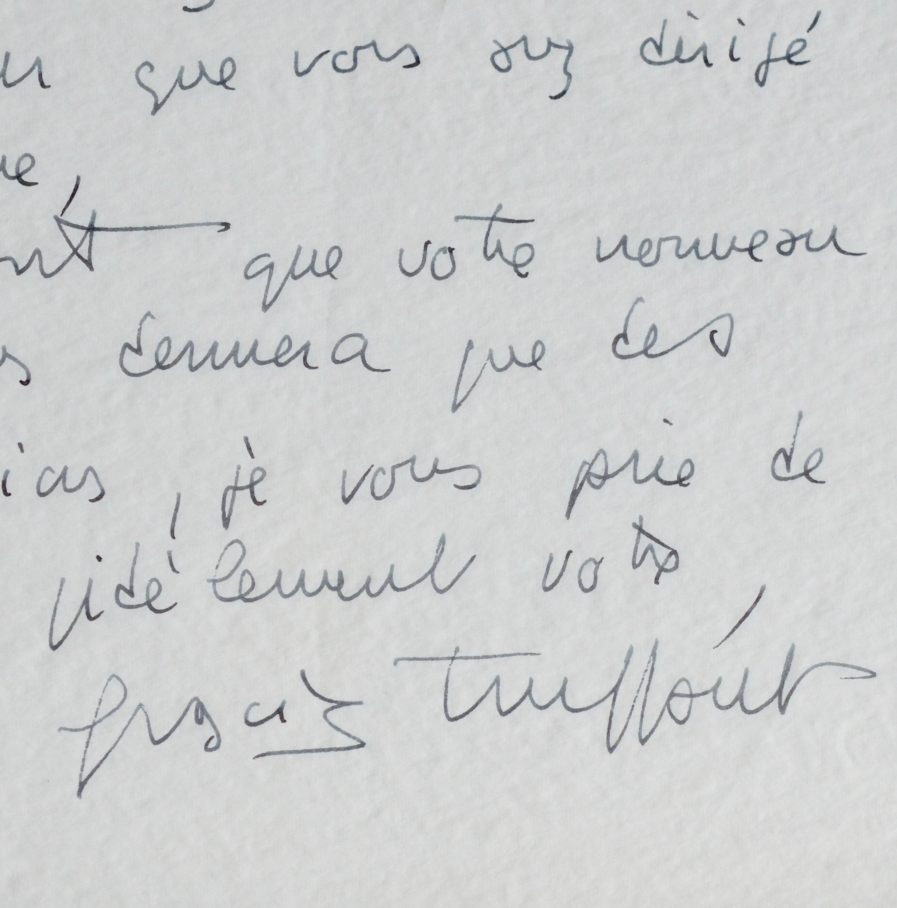 que vous avez dirigé
que votre nouveau
donnera que des
, je vous prie de
fidèlement votre
françois truffaut